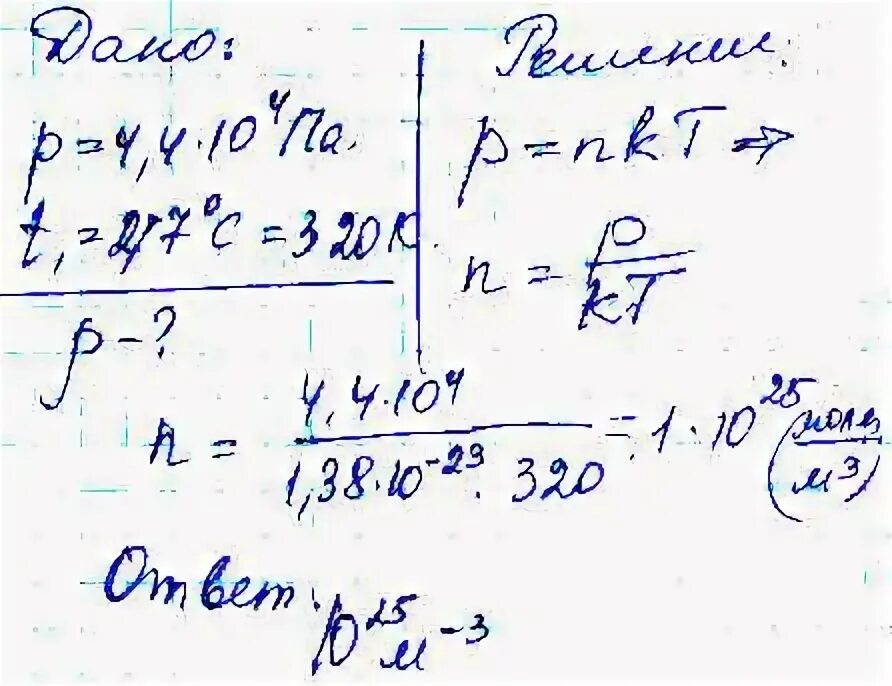 Дано:
p = 4,4·10⁴ Па.
t₁ = 27°C = 320 К.
p - ?
Решение:
p = nkT ⇒
n = p/kT
n = 4,4·10⁴/1,38·10⁻²³·320 = 1·10²⁵ (моль/м³)
Ответ: 10²⁵ м⁻³